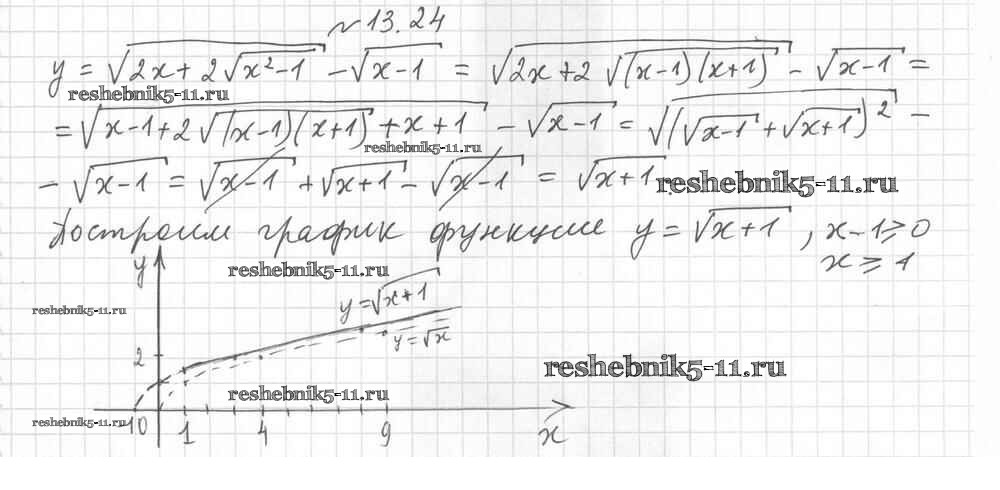 № 13.24
y = √(2x + 2√(x²-1)) - √(x-1) = √(2x + 2√((x-1)(x+1))) - √(x-1) =
reshebnik5-11.ru
= √(x-1+2√((x-1)(x+1)) + x + 1) - √(x-1) = √((√(x-1) + √(x+1))²) -
reshebnik5-11.ru
- √(x-1) = √(x-1) + √(x+1) - √(x-1) = √(x+1)
reshebnik5-11.ru
Построим график функции y = √(x+1), x-1 ≥ 0
x ≥ 1
y
reshebnik5-11.ru
y = √(x+1)
reshebnik5-11.ru
y = √x
2
reshebnik5-11.ru
reshebnik5-11.ru
reshebnik5-11.ru
-1 0 1 4 9 x